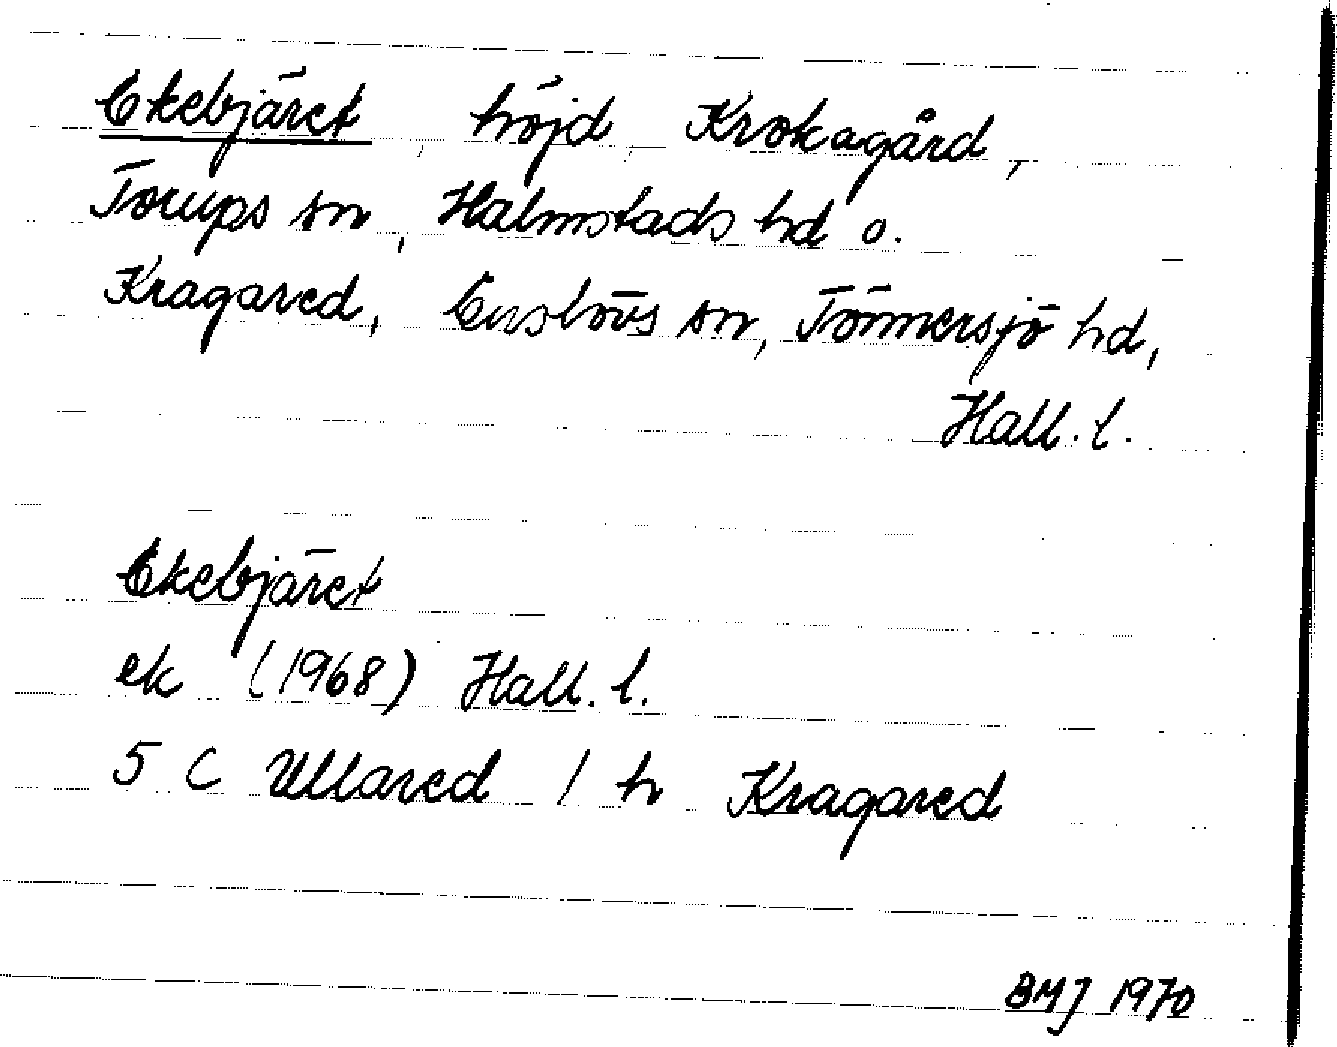 Ekebjäret, höjd, Krokagård,
Torups sn, Halmstads hd o.
Kragared, Enslövs sn, Tönnersjö hd,
Hall. l.
Ekebjäret
ek (1968) Hall. l.
5 C Ullared / h Kragared
BMJ 1970